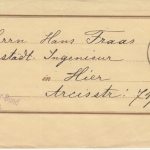 errn Hans Fraas
städt. Ingenieur
in Hier
Arcisstr.